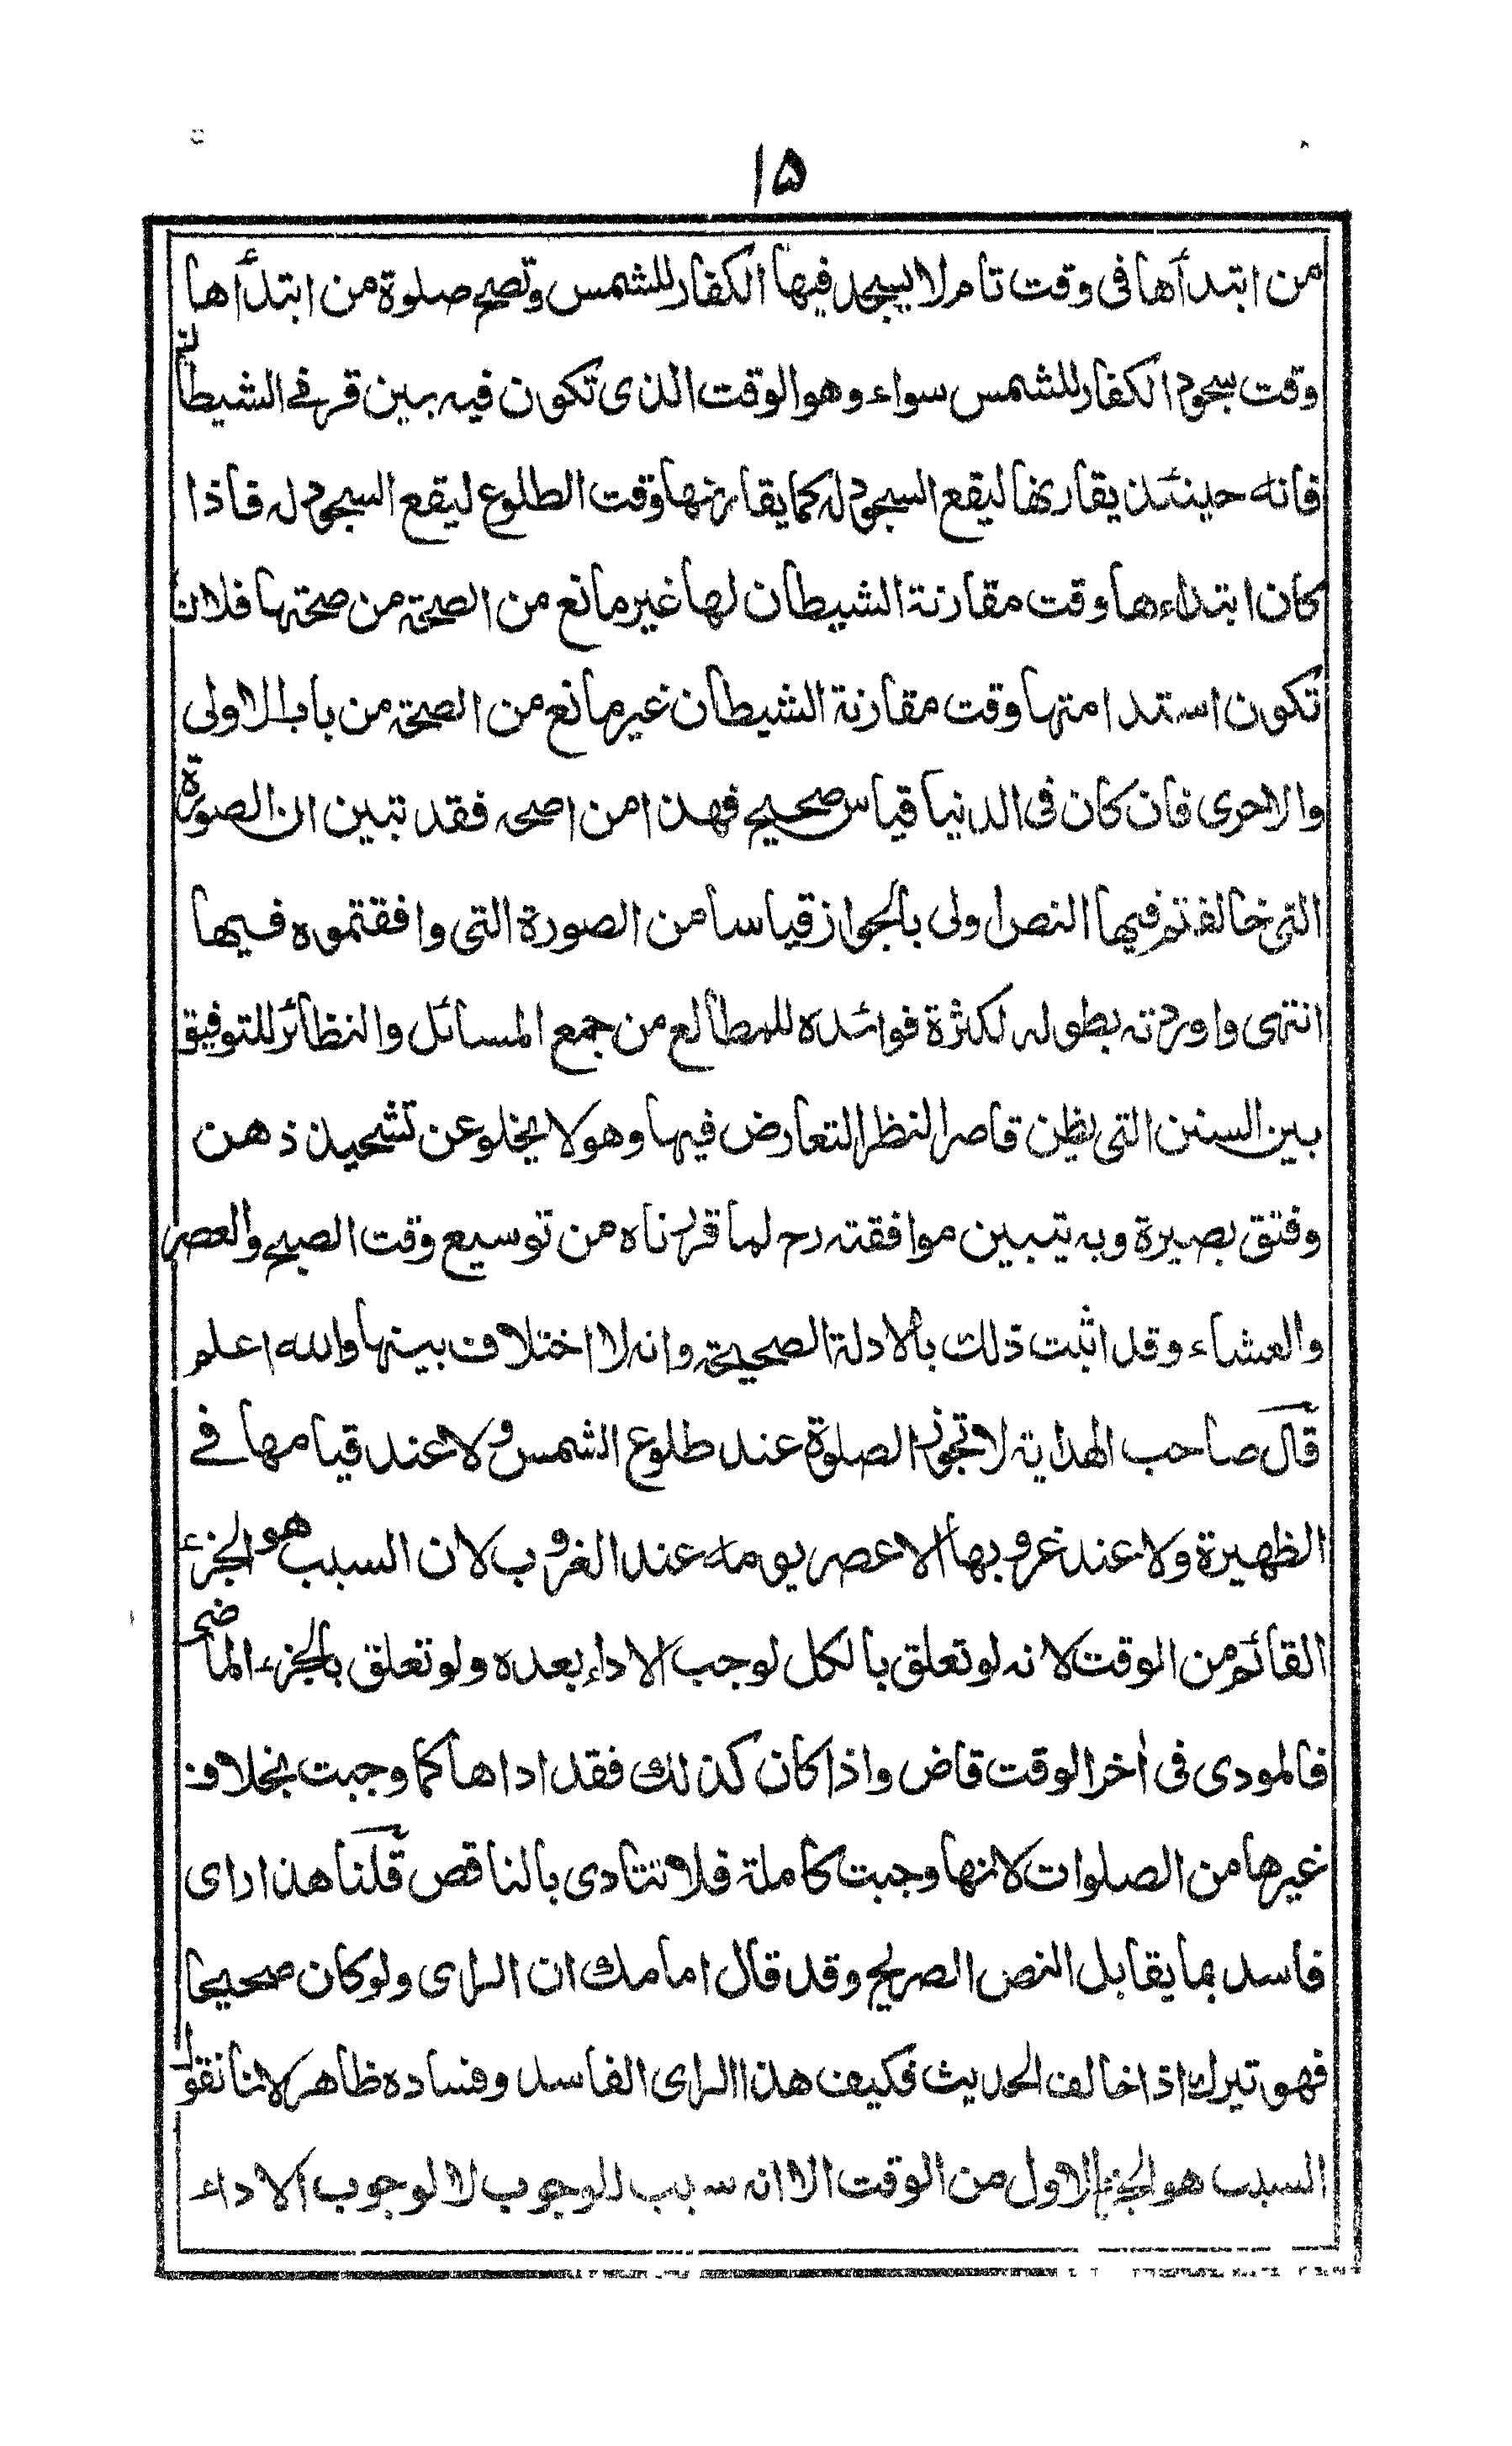 ۱۵
من ابتدأها فى وقت تام لا يسجد فيها الكفار للشمس وتصح صلوة من ابتدأها
وقت سجود الكفار للشمس سواء وهو الوقت الذى تكون فيه بين قرنے الشيطان
فانه حينئذ يقارنها ليقع السجود له كما يقارنها وقت الطلوع ليقع السجود له فاذا
كان ابتداءها وقت مقارنة الشيطان لها غير مانع من الصحة من صحتها فلان
تكون استدامتها وقت مقارنة الشيطان غير مانع من الصحة من باب الاولى
والاحرى فان كان فى الدنيا قياس صحيح فهذا من اصحه فقد تبين ان الصورة
التى خالفتم فيها النص اولى بالجواز قياسا من الصورة التى وافقتموه فيها
انتهى واوردته بطوله لكثرة فوائده للمطالع من جمع المسائل والنظائر للتوفيق
بين السنن التى يظن قاصر النظر التعارض فيها وهو لا يخلو عن تشحيذ ذهن
وفتق بصيرة وبه يتبين موافقته رح لما قررناه من توسيع وقت الصبح والعصر
والعشاء وقد اثبت ذلك بالادلة الصحيحة وانه لا اختلاف بينها والله اعلم
قال صاحب الهداية لا تجوز الصلوة عند طلوع الشمس ولا عند قيامها فے
الظهيرة ولا عند غروبها الا عصر يومه عند الغروب لان السبب هو الجزء
القائم من الوقت لانه لو تعلق بالكل لوجب الاداء بعده ولو تعلق بالجزء الماضى
فالمودى فى أخر الوقت قاض واذا كان كذلك فقد اداها كما وجبت بخلاف
غيرها من الصلوات لانها وجبت كاملة فلا تتادى بالناقص قلنا هذا راى
فاسد بما يقابل النص الصريح وقد قال امامك ان الراى ولو كان صحيحا
فهو تيرك اذا خالف الحديث فكيف هذا الراى الفاسد وفساده ظاهر لاننا نقول
السبب هو الجزء الاول من الوقت الا انه سبب للوجوب لا لوجوب الاداء